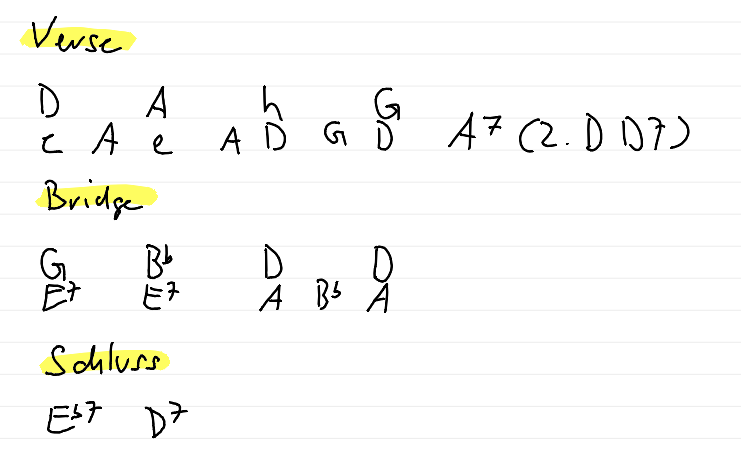 Verse
D A h G
e A e A D G D A7 (2. D D7)
Bridge
G Bb D D
E7 E7 A Bb A
Schluss
Eb7 D7